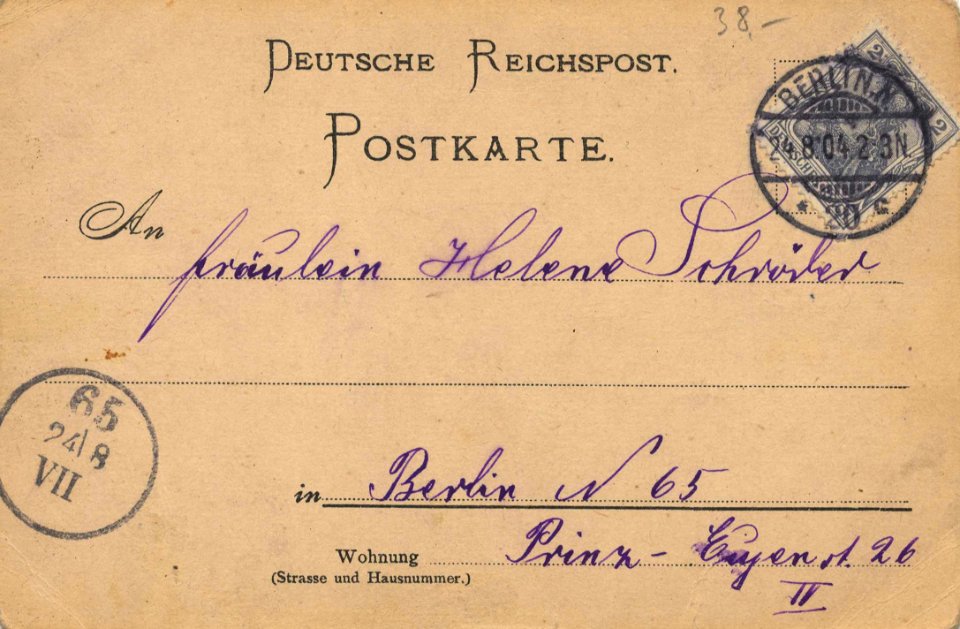 38,–
DEUTSCHE REICHSPOST.
POSTKARTE.
2
2
BERLIN.N.
24.8.04.2-3N
* 20 c
An Fräulein Helene Schröder
65
24/8
VII
in Berlin N 65
Wohnung Prinz-Eugenst. 26
(Strasse und Hausnummer.) II